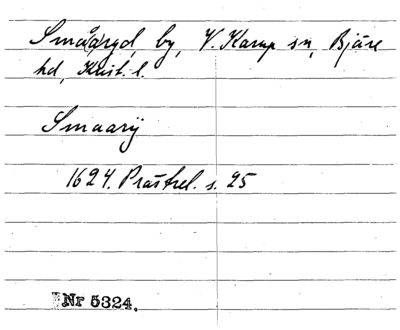 Smååryd, by, V. Karup sn, Bjäre
hd, Krist. l.
Smaarÿ
1624. Prästrel. s. 25
Nr 5324.